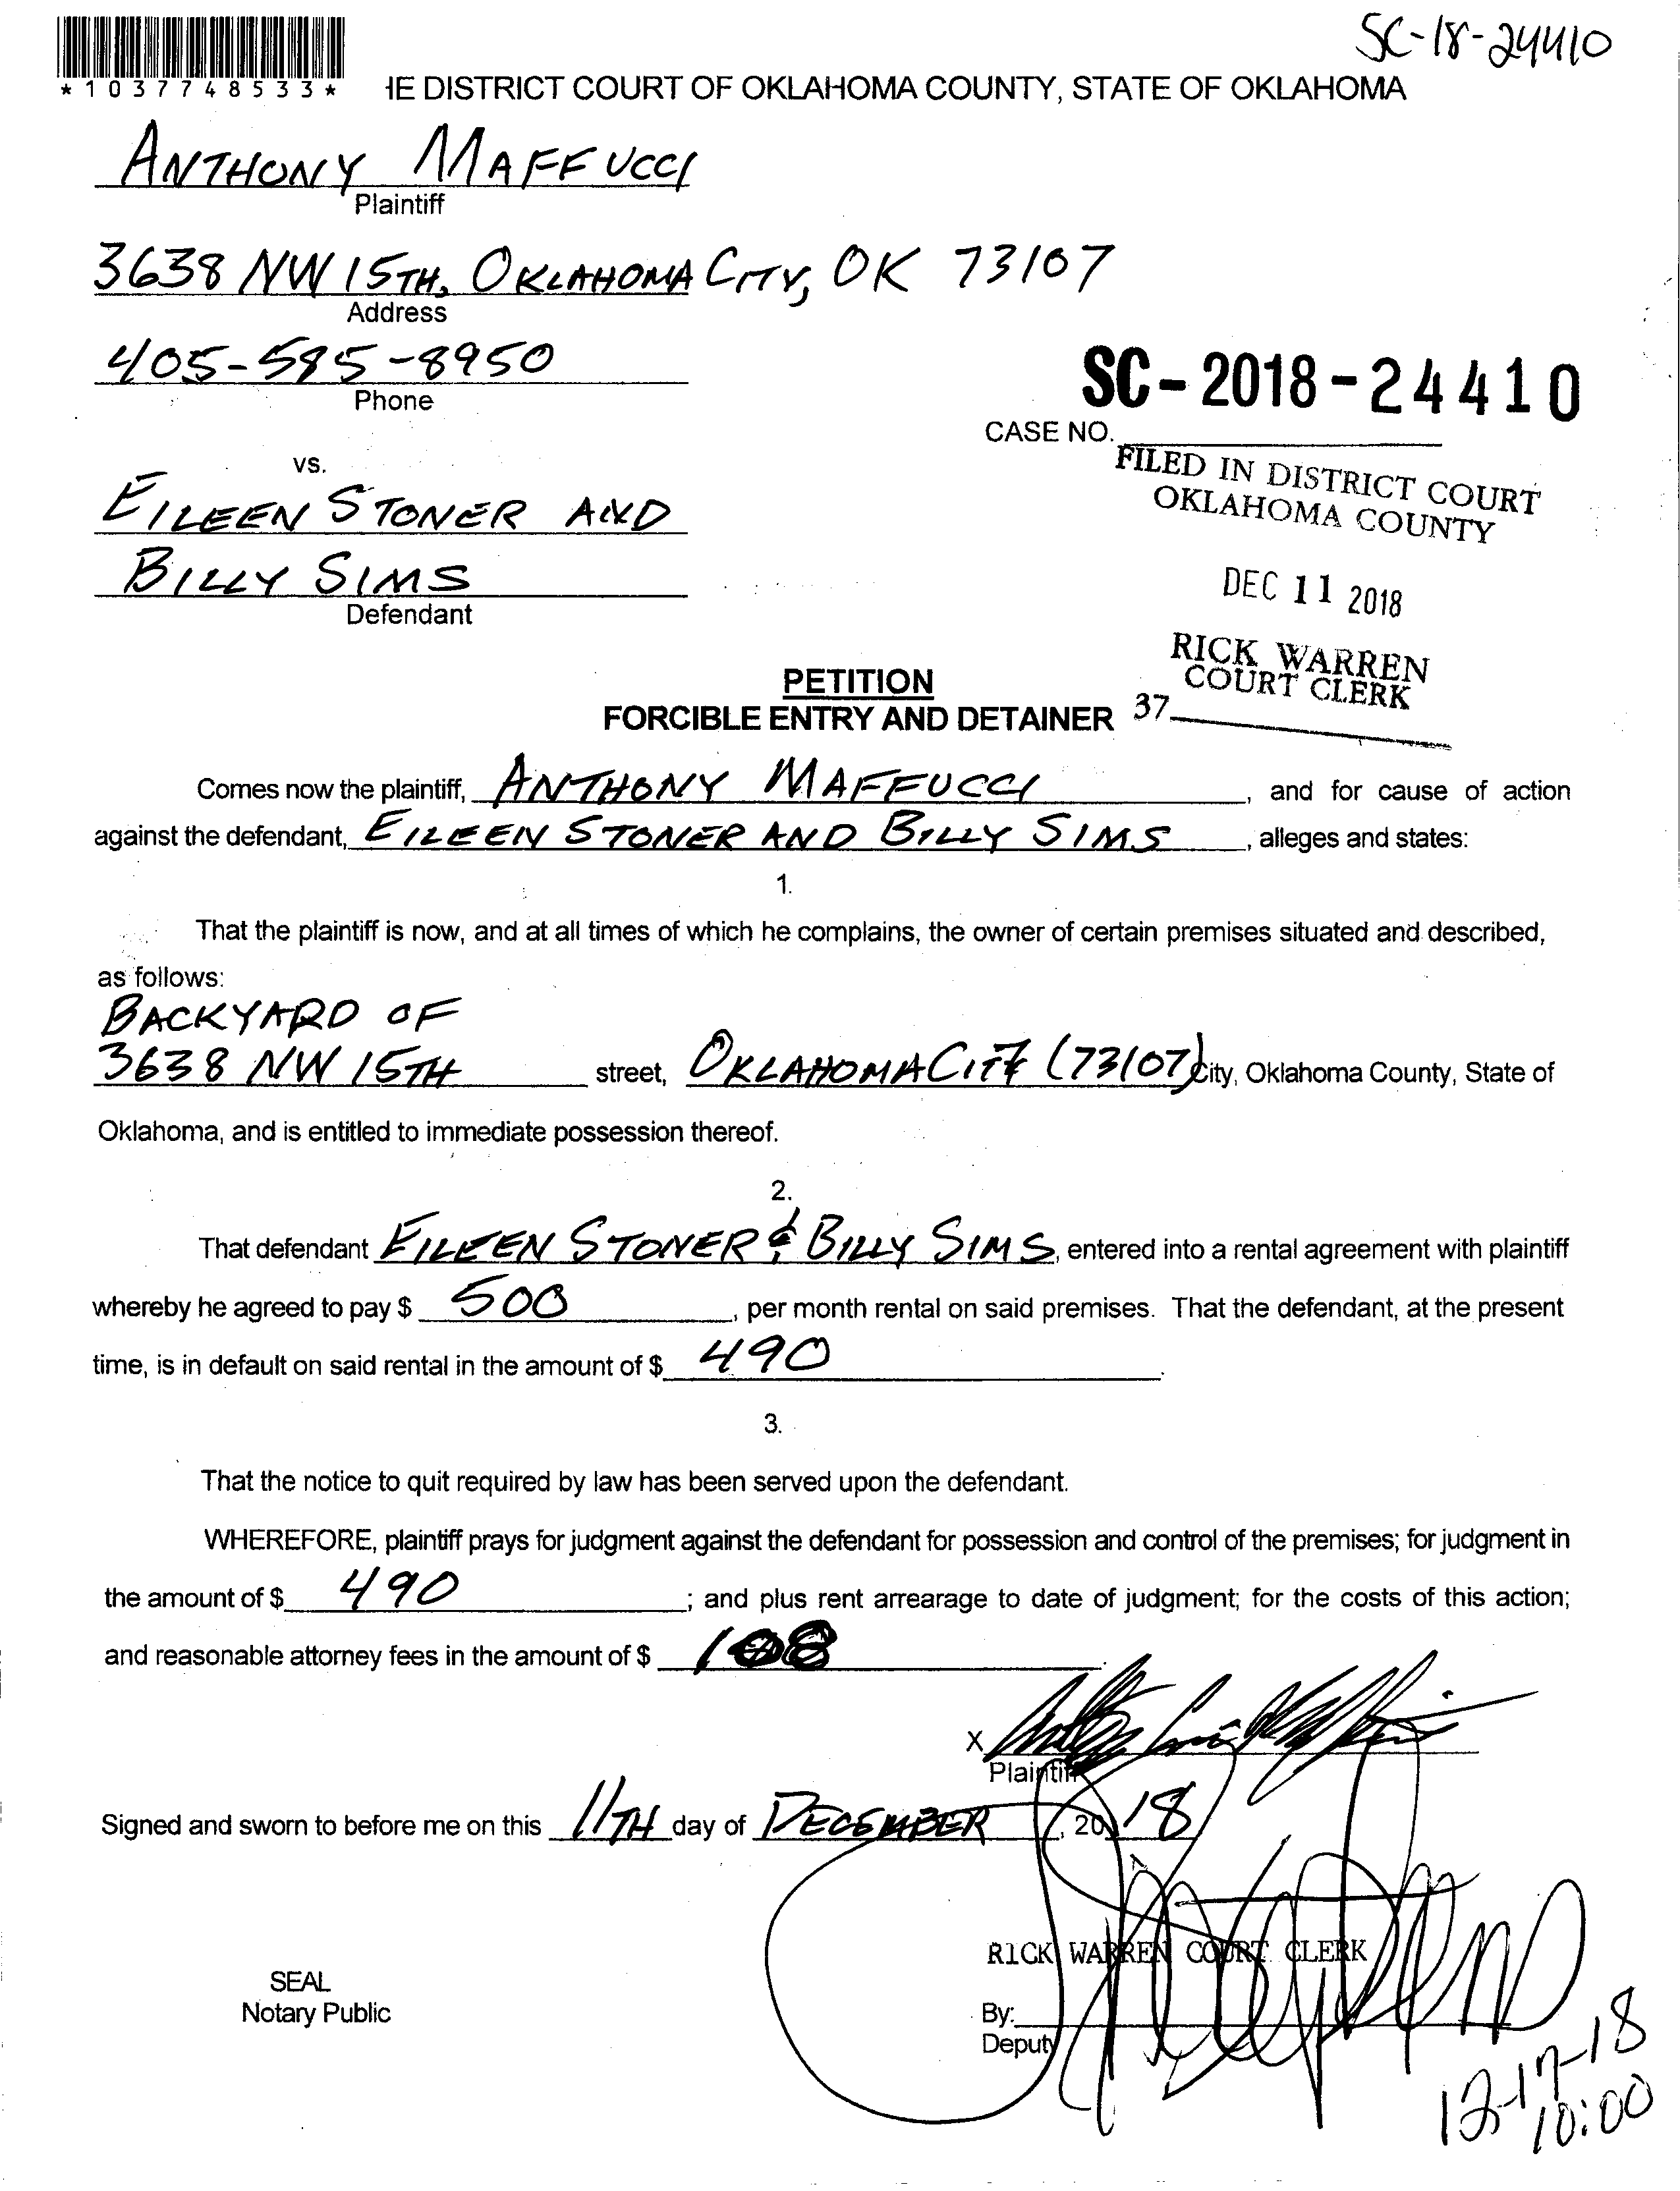 SC-18-24410
*1037748533*
HE DISTRICT COURT OF OKLAHOMA COUNTY, STATE OF OKLAHOMA
ANTHONY MAFFUCCI
Plaintiff
3638 NW 15TH, OKLAHOMA CITY, OK 73107
Address
405-595-8950
Phone
SC-2018-24410
CASE NO.
FILED IN DISTRICT COURT
OKLAHOMA COUNTY
vs.
EILEEN STONER AND
BILLY SIMS
Defendant
DEC 11 2018
RICK WARREN
COURT CLERK
37
PETITION
FORCIBLE ENTRY AND DETAINER
Comes now the plaintiff, ANTHONY MAFFUCCI, and for cause of action
against the defendant, EILEEN STONER AND BILLY SIMS, alleges and states:
1.
That the plaintiff is now, and at all times of which he complains, the owner of certain premises situated and described,
as follows:
BACKYARD OF
3638 NW 15TH street, OKLAHOMA CITY (73107) City, Oklahoma County, State of
Oklahoma, and is entitled to immediate possession thereof.
2.
That defendant EILEEN STONER & BILLY SIMS, entered into a rental agreement with plaintiff
whereby he agreed to pay $ 500, per month rental on said premises. That the defendant, at the present
time, is in default on said rental in the amount of $ 490.
3.
That the notice to quit required by law has been served upon the defendant.
WHEREFORE, plaintiff prays for judgment against the defendant for possession and control of the premises; for judgment in
the amount of $ 490; and plus rent arrearage to date of judgment; for the costs of this action;
and reasonable attorney fees in the amount of $ 108.
X
Plaintiff
Signed and sworn to before me on this 11TH day of DECEMBER, 2018
RICK WARREN COURT CLERK
SEAL
Notary Public
By:
Deputy
12-17-18
10:00